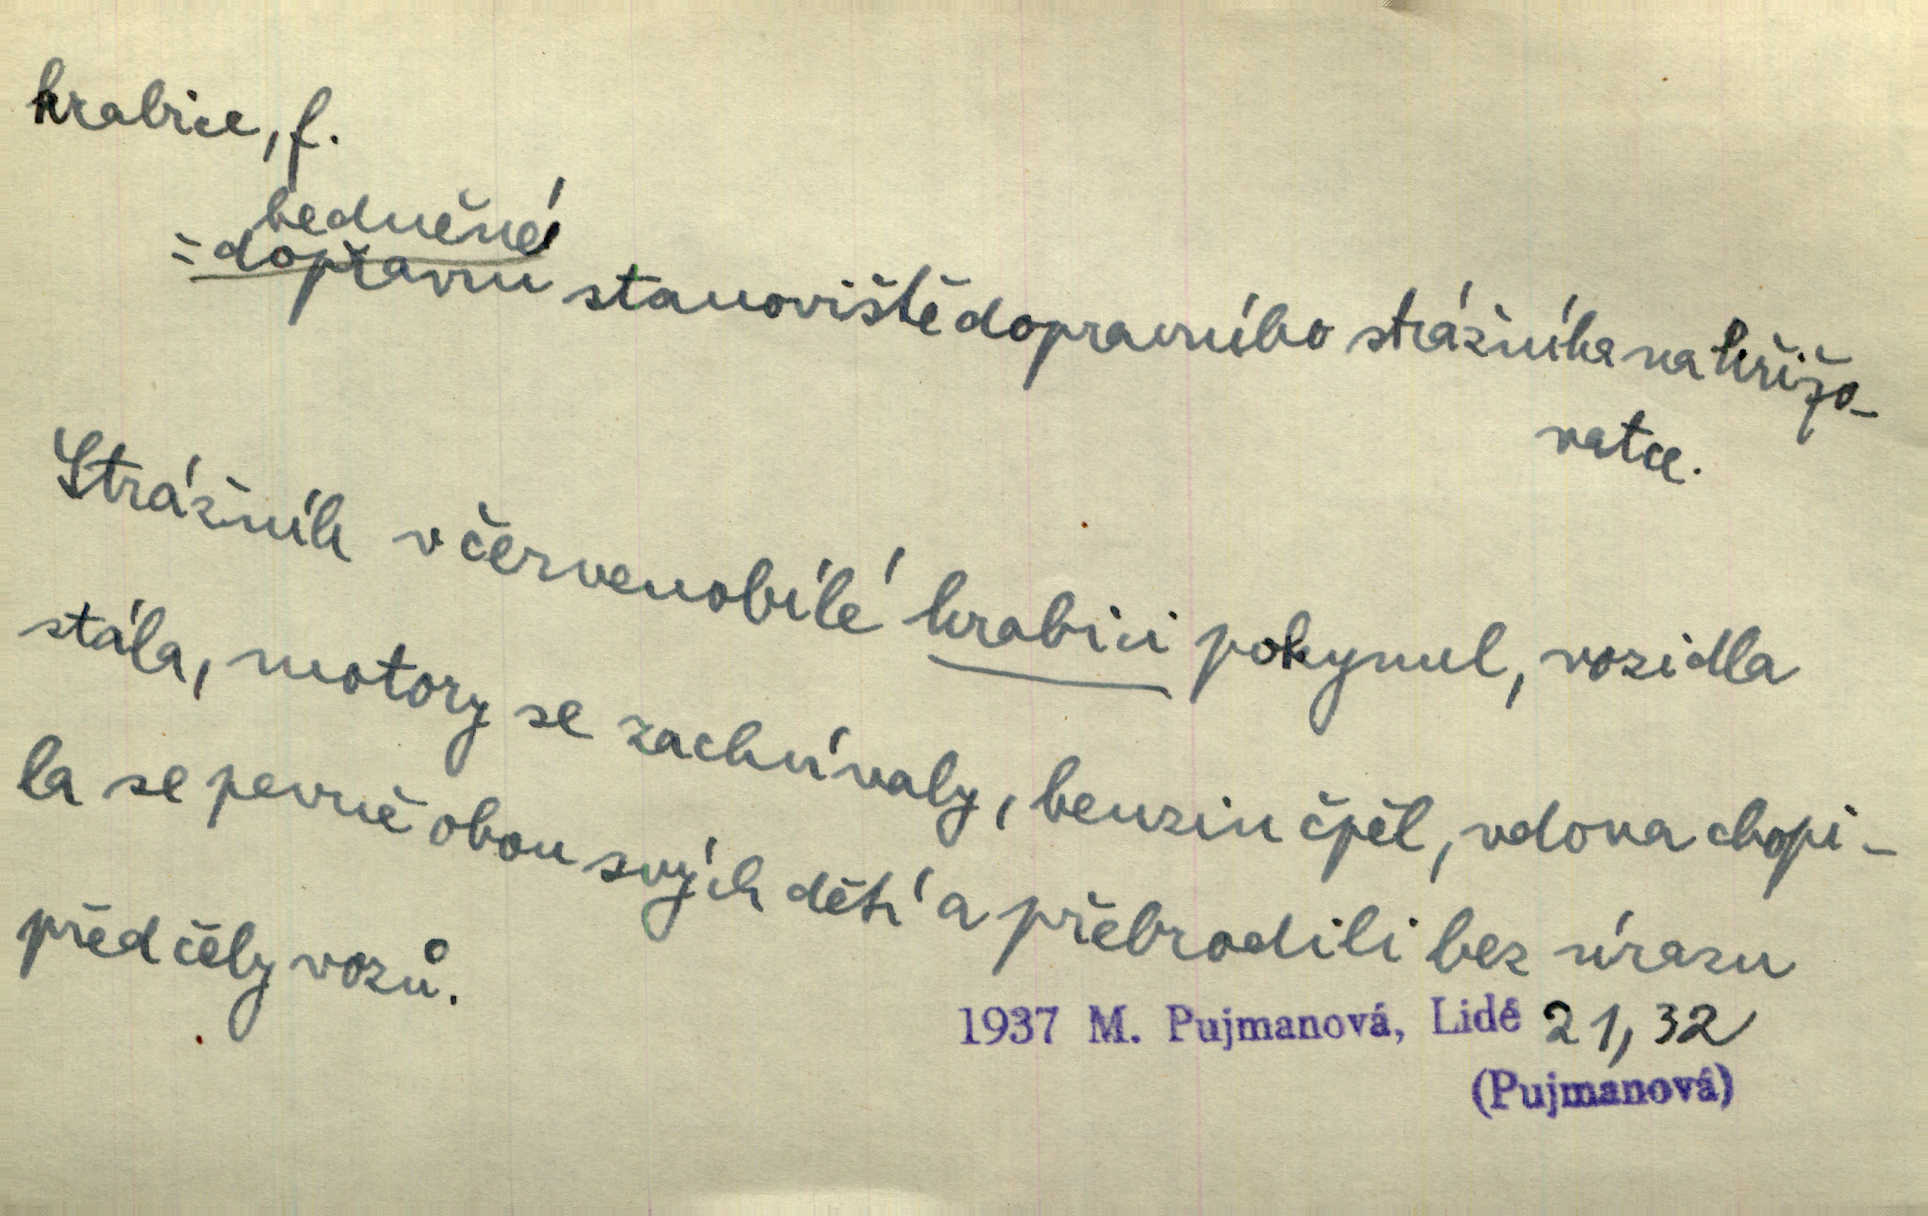 krabice, f.
bedněné
= dopravní stanoviště dopravního strážníka na křižo-
vatce.
Strážník v červenobílé krabici pokynul, vozidla
stála, motory se zachvívaly, benzin čpěl, vdova chopi-
la se pevně obou svých dětí a přebrodili bez úrazu
před čely vozů.
1937 M. Pujmanová, Lidé 21,32
(Pujmanová)